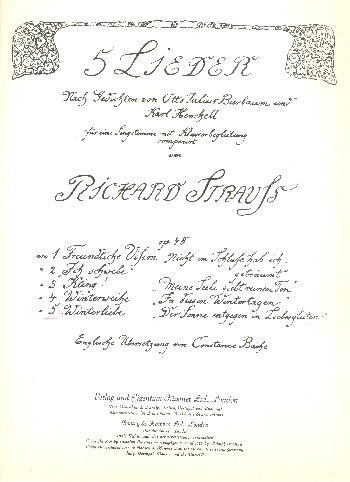 5 LIEDER
Nach Gedichten von Otto Julius Bierbaum und
Karl Henckell
für eine Singstimme mit Klavierbegleitung
componirt
von
RICHARD STRAUSS
op. 48
No 1 Freundliche Vision „Nicht im Schlafe hab ich
geträumt"
" 2. Ich schwebe
" 3 Kling! „Meine Seele gibt reinen Ton"
" 4. Winterweihe „In diesen Wintertagen"
" 5. Winterliebe „Der Sonne entgegen in Liebesgluten"
Englische Übersetzung von Constance Bache
Verlag und Eigentum Fürstner Ltd., London
Boosey & Hawkes Ltd., London